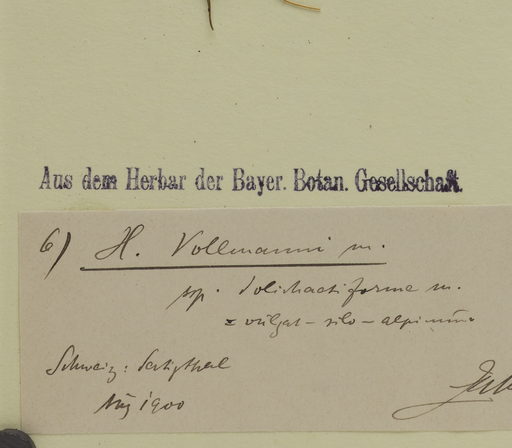 Aus dem Herbar der Bayer. Botan. Gesellschaft.
6) H. Vollmanni m.
ssp. dolichactiforme m.
vulgat - silv - alpinum
Schweiz: Sertigthal
Aug 1900